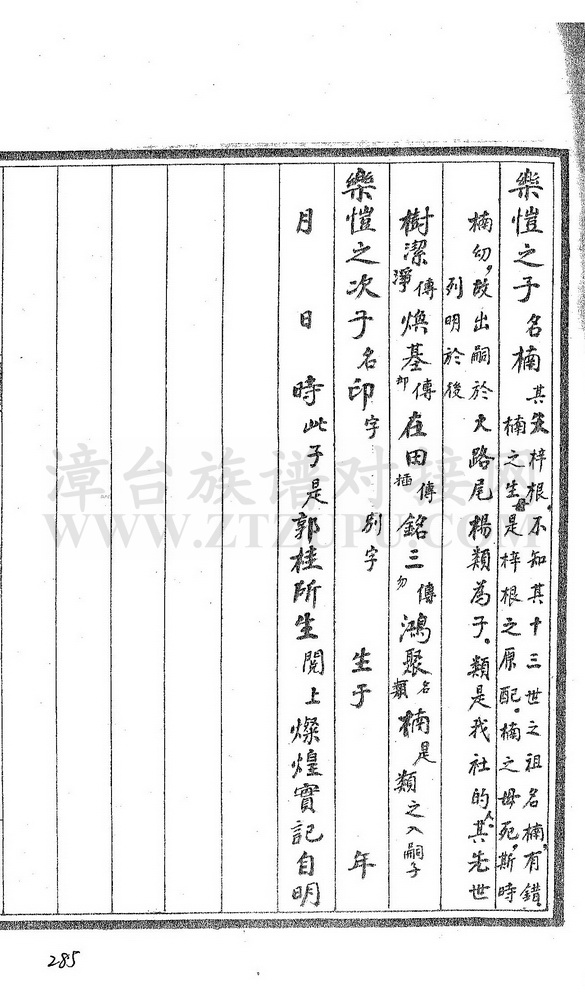 樂愷之子名楠其父梓根。不知其十三世之祖名楠,有錯。
楠之生母是梓根之原配。楠之母死,斯時
楠幼,故出嗣於大路尾楊類為子。類是我社的人其先世
列明於後
樹潔淨傳煥基却傳在田插傳銘三勿傳鴻聚名類楠是類之入嗣子
樂愷之次子名印字 別字 生于 年
月 日 時此子是郭桂所生閱上燦煌實記自明
漳台族谱对接网
WWW.ZTZUPU.COM
285